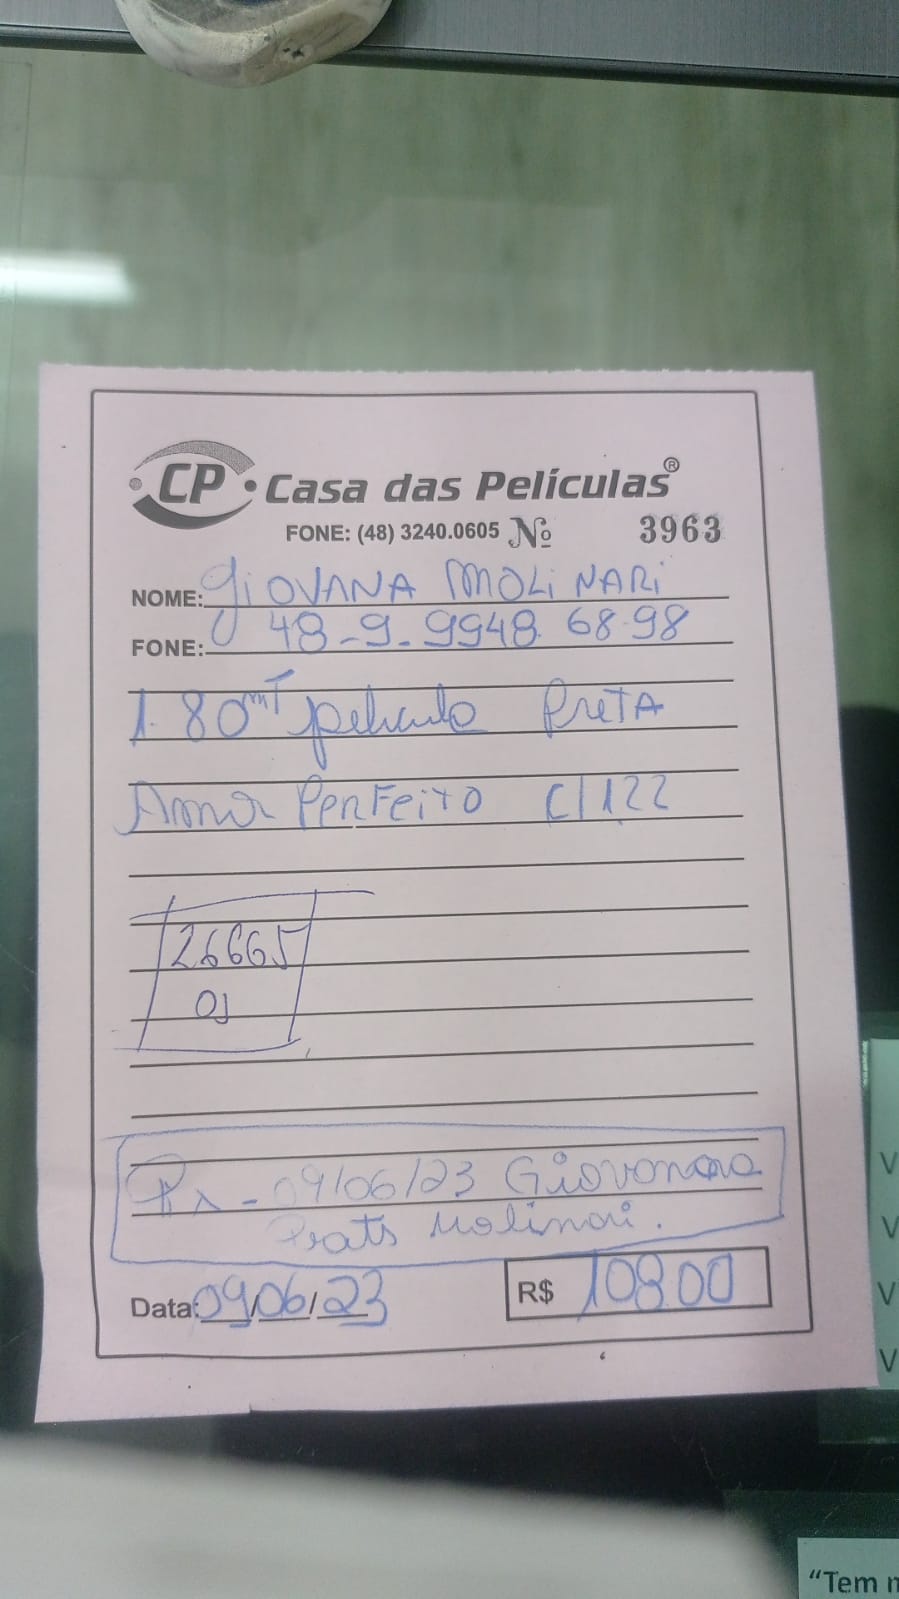 CP Casa das Películas®
FONE: (48) 3240.0605 Nº 3963
NOME: GIOVANA MOLINARI
FONE: 48-9-9948 68-98
1.80mT película PRETA
AMOR PERFEITO C/122
26665
01
Px - 09/06/23 Giovanna
Prats Molinari.
Data: 09/06/23 R$ 108.00
V
V
V
V
"Tem